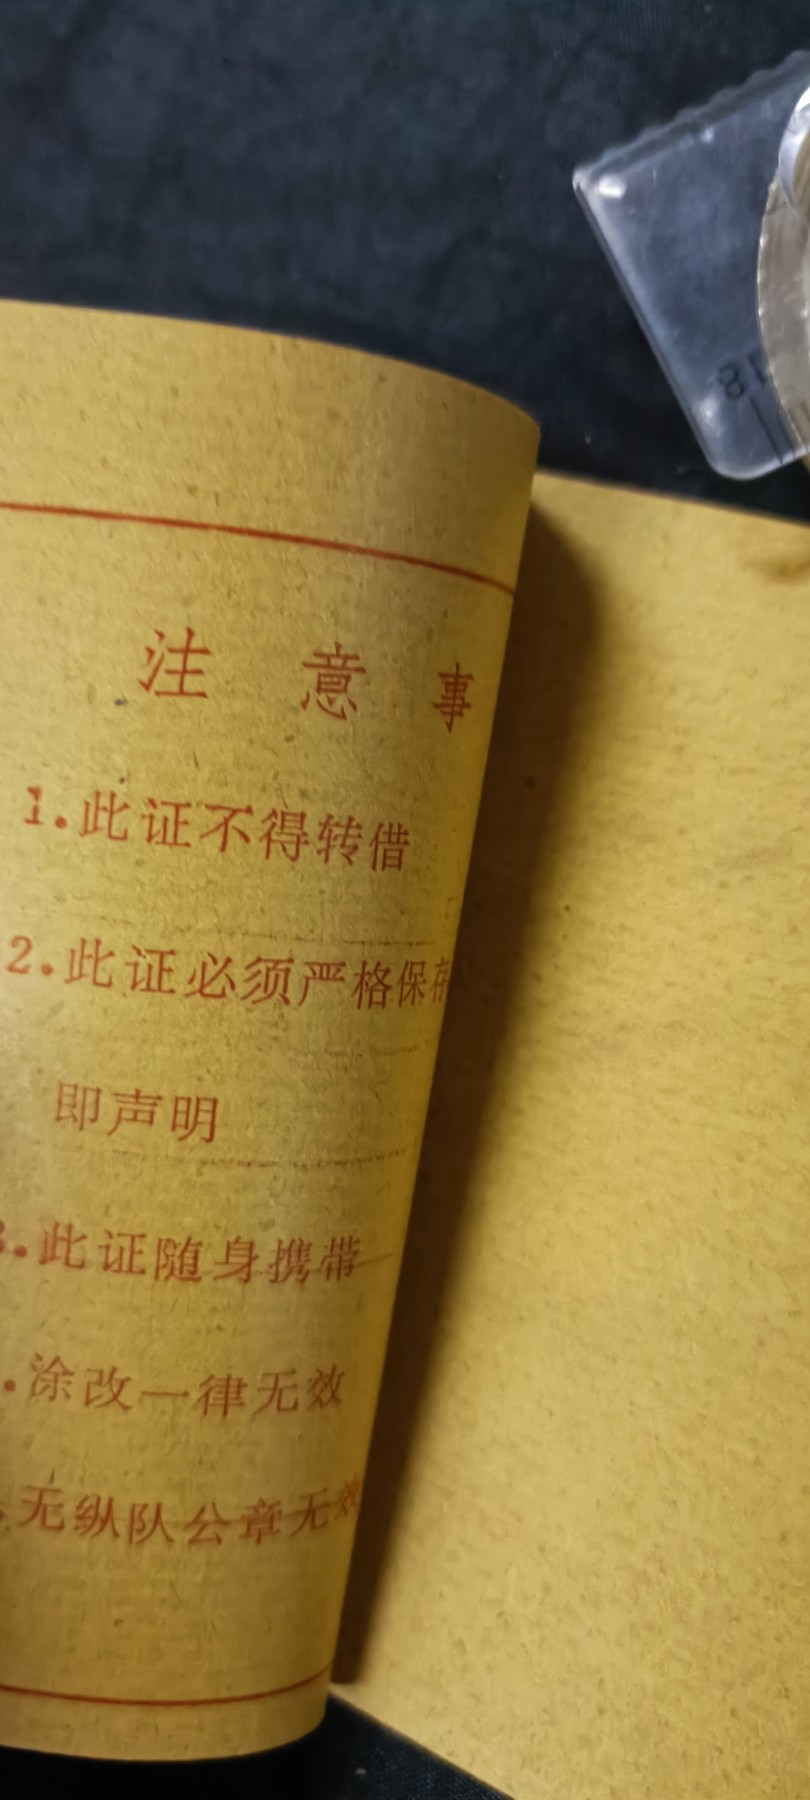 注意事
1.此证不得转借
2.此证必须严格保存
即声明
3.此证随身携带
.涂改一律无效
.无纵队公章无效
18